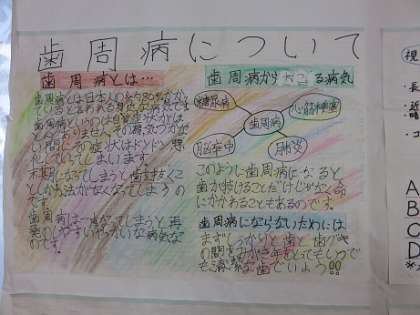 歯周病について
歯周病とは…
歯周病とは日本人の
歯周病というのは自覚症状がほ
とんどありません。その為気づかな
い間にその症状はドンドン悪
化していてしまいます。
末期になってしまうと歯を抜くこ
としか方法がなくなってしまうの
です。
歯周病は一度なってしまうと再
発のしやすいやっかいな病気な
のです。
歯周病からおこる病気
糖尿病
心筋梗塞
歯周病
脳卒中
肺炎
このように歯周病になると
歯が抜けることだけじゃなく命
にかかわることもあるのです。
歯周病にならないためには
まずしっかりと歯と歯ぐき
の間をみがき年をとってもいつで
も清潔な歯でいよう!!
視
・長
A
B
C
D